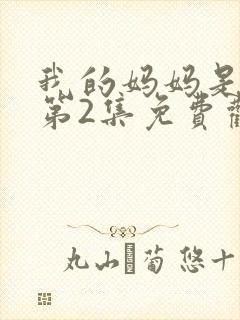 我的妈妈是
第2集免費觀
丸山 菊悠十